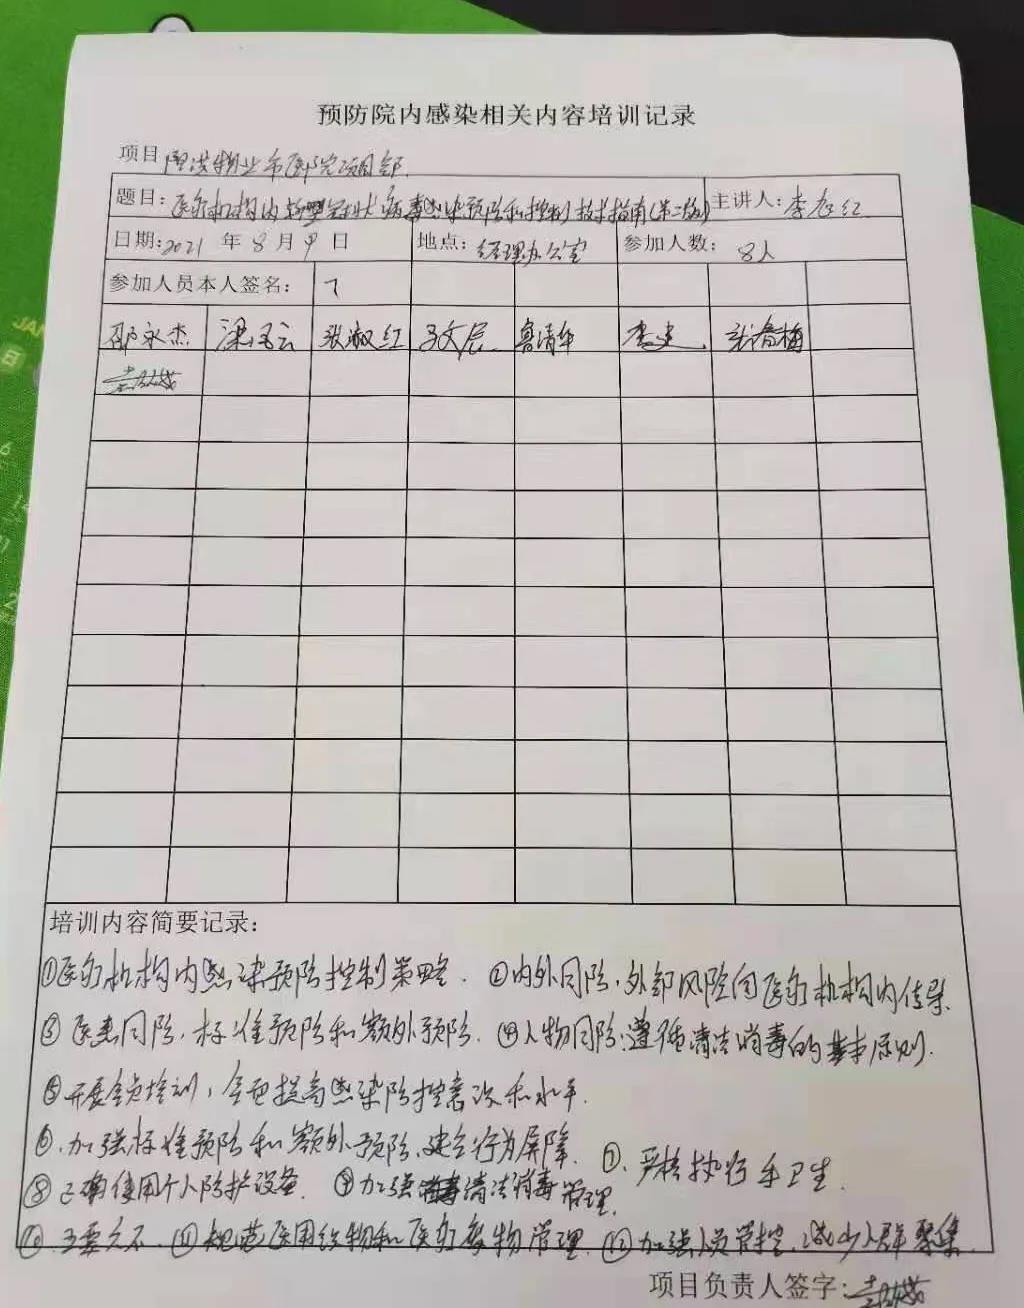 预防院内感染相关内容培训记录
项目 物业市医院项目部
题目：医疗机构内新型冠状病毒感染预防和控制技术指南（第三版） 主讲人：李红
日期：2021 年 8 月 9 日 地点：经理办公室 参加人数：8人
参加人员本人签名：
邵永杰 梁玉云 张淑红 鲁清华 李建 张春梅
培训内容简要记录：
①医疗机构内感染预防控制策略. ②内外同防，外部风险向医疗机构内传导
③医患同防，标准预防和额外预防. ④人物同防：遵循清洁消毒的基本原则.
⑤开展全员培训，全面提高感染防控意识和水平.
⑥.加强标准预防和额外预防.建立行为屏障. ⑦.严格执行手卫生.
⑧正确使用个人防护设备. ⑨加强清洁消毒管理.
⑪规范医用织物和医疗废物管理 ⑫加强人员管控.减少人群聚集.
项目负责人签字：